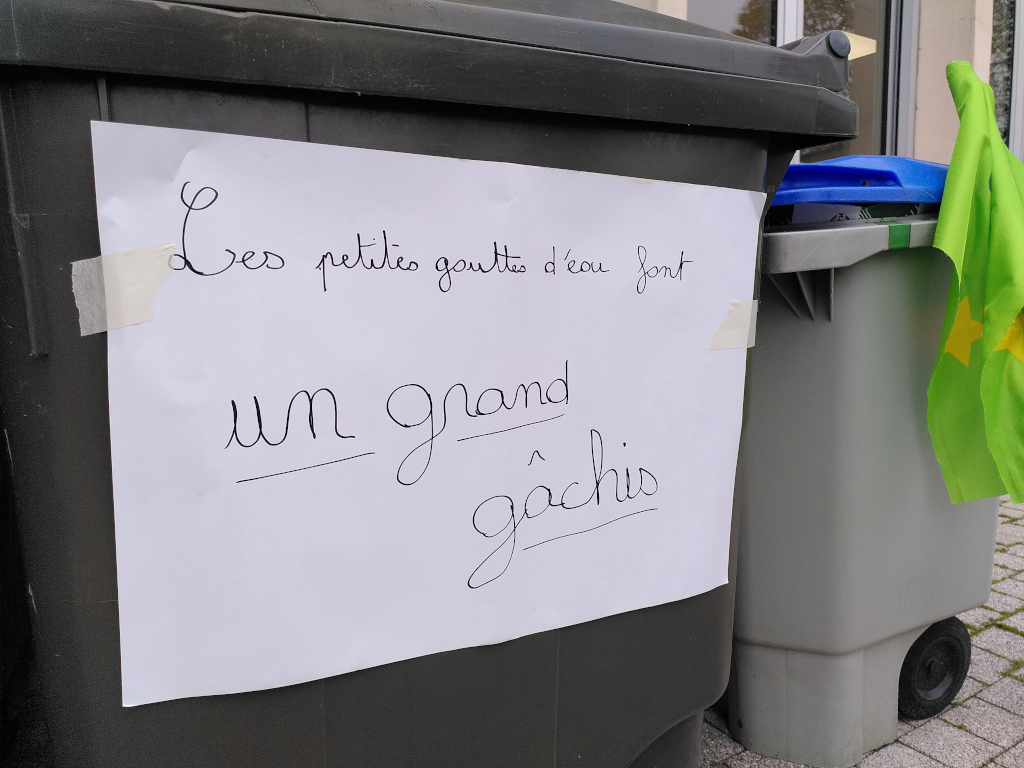 Les petites gouttes d'eau font
un grand
gâchis